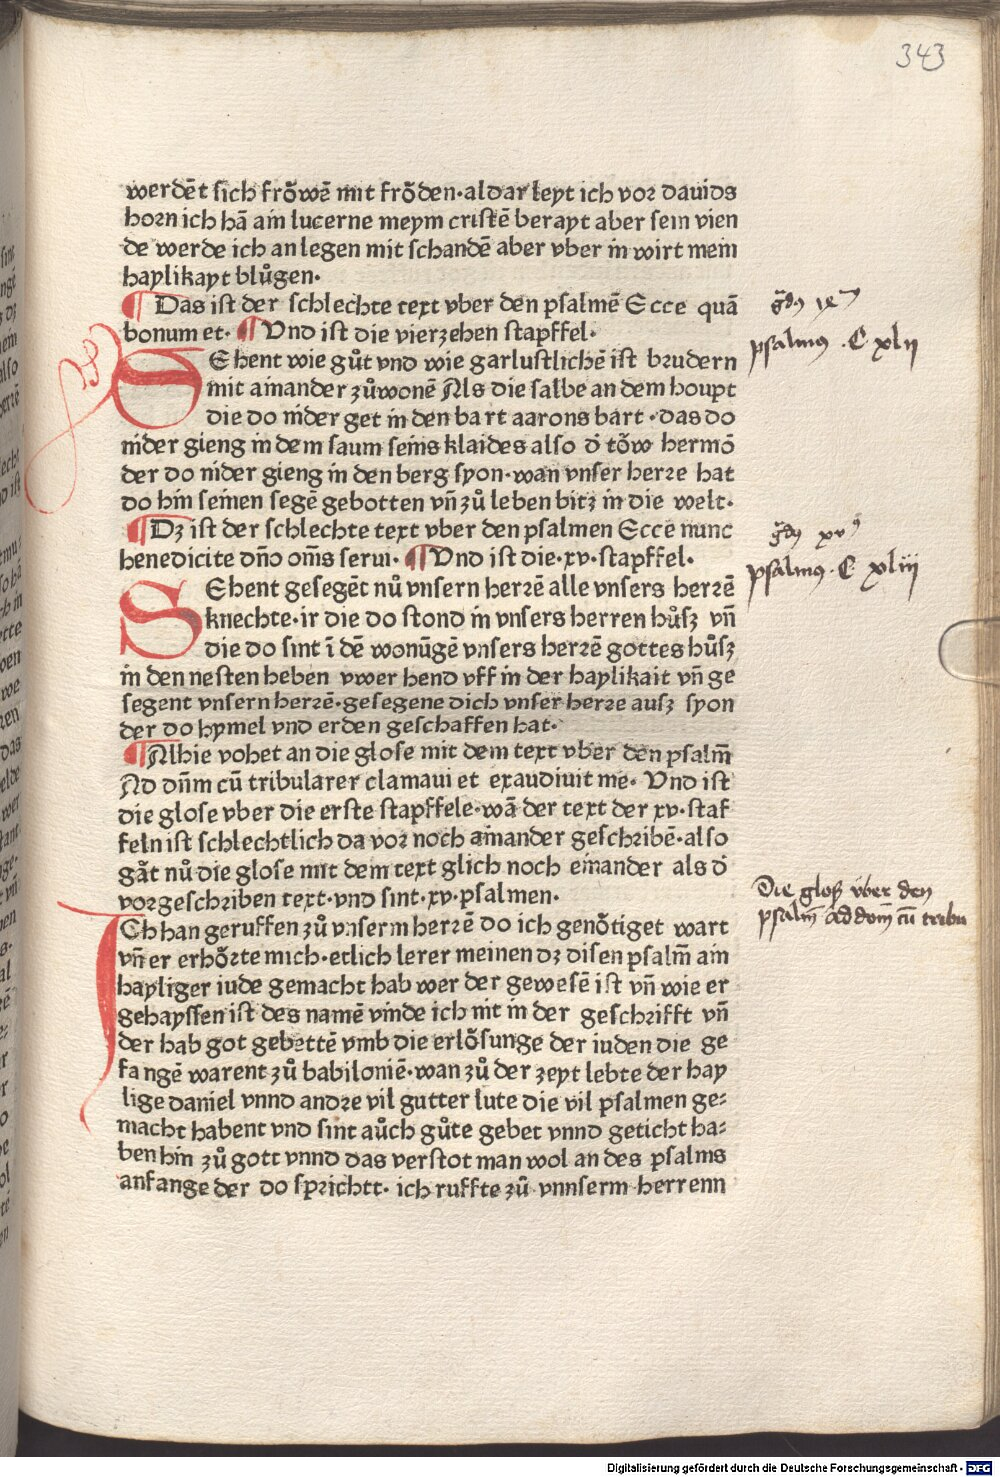 343
werdēt sich frőwē mit frőden·aldar leyt ich vor dauids
horn ich hā ain lucerne meym cristē berayt aber sein vien
de werde ich an legen mit schandē aber vber in wirt mein
haylikayt blůgen·
¶ Das ist der schlechte text vber den psalmē Ecce quā
bonum et· ¶ Vnd ist die vierzehen stapffel·
psalmꝰ · C xlij
SEhent wie gůt vnd wie garlustlichē ist brudern
mit ainander zůwonē Als die salbe an dem houpt
die do nider get in den bart aarons bart · das do
nider gieng in dem saum seins klaides also ð tőw hermō
der do nider gieng in den berg syon·wan vnser herre hat
do hin seinen segē gebotten vn̄ zů leben bitz in die welt·
¶ Dz ist der schlechte text vber den psalmen Ecce nunc
henedicite dn̄o om̄s serui· ¶ Vnd ist die·xv·stapffel·
psalmꝰ · C xliij
SEhent gesegēt nů vnsern herrē alle vnsers herrē
knechte·ir die do stond in vnsers herren hůsz vn̄
die do sint ī dē wonūgē vnsers herrē gottes hůsz
in den nesten heben vwer hend vff in der haylikait vn̄ ge
segent vnsern herrē·gesegene dich vnser herre ausz syon
der do hymel vnd erden geschaffen hat·
¶ Alhie vohet an die glose mit dem text vber den psalm̄
Ad dn̄m cū tribularer clamaui et exaudiuit me· Vnd ist
die glose vber die erste stapffele·wā der text der xv·staf
feln ist schlechtlich da vor noch ainander geschribē·also
gat nů die glose mit dem text glich noch einander als ð
vorgeschriben text·vnd sint·xv·psalmen·
Die glosz vber den
psalm̄ ad dom̄ cū tribu
ICh han geruffen zů vnserm herrē do ich genőtiget wart
vn̄ er erhőrte mich·etlich lerer meinen dz disen psalm̄ ain
hayliger iude gemacht hab wer der gewesē ist vn̄ wie er
gehayssen ist des namē vinde ich nit in der geschrifft vn̄
der hab got gebettē vmb die erlősunge der iuden die ge
fangē warent zů babiloniē·wan zů der zeyt lebte der hay
lige daniel vnnd andre vil gutter lute die vil psalmen ge⸗
macht habent vnd sint aůch gůte gebet vnnd geticht ha⸗
ben hin zů gott vnnd das verstot man wol an des psalms
anfange der do sprichtt· ich ruffte zů vnnserm herrenn
Digitalisierung gefördert durch die Deutsche Forschungsgemeinschaft · DFG